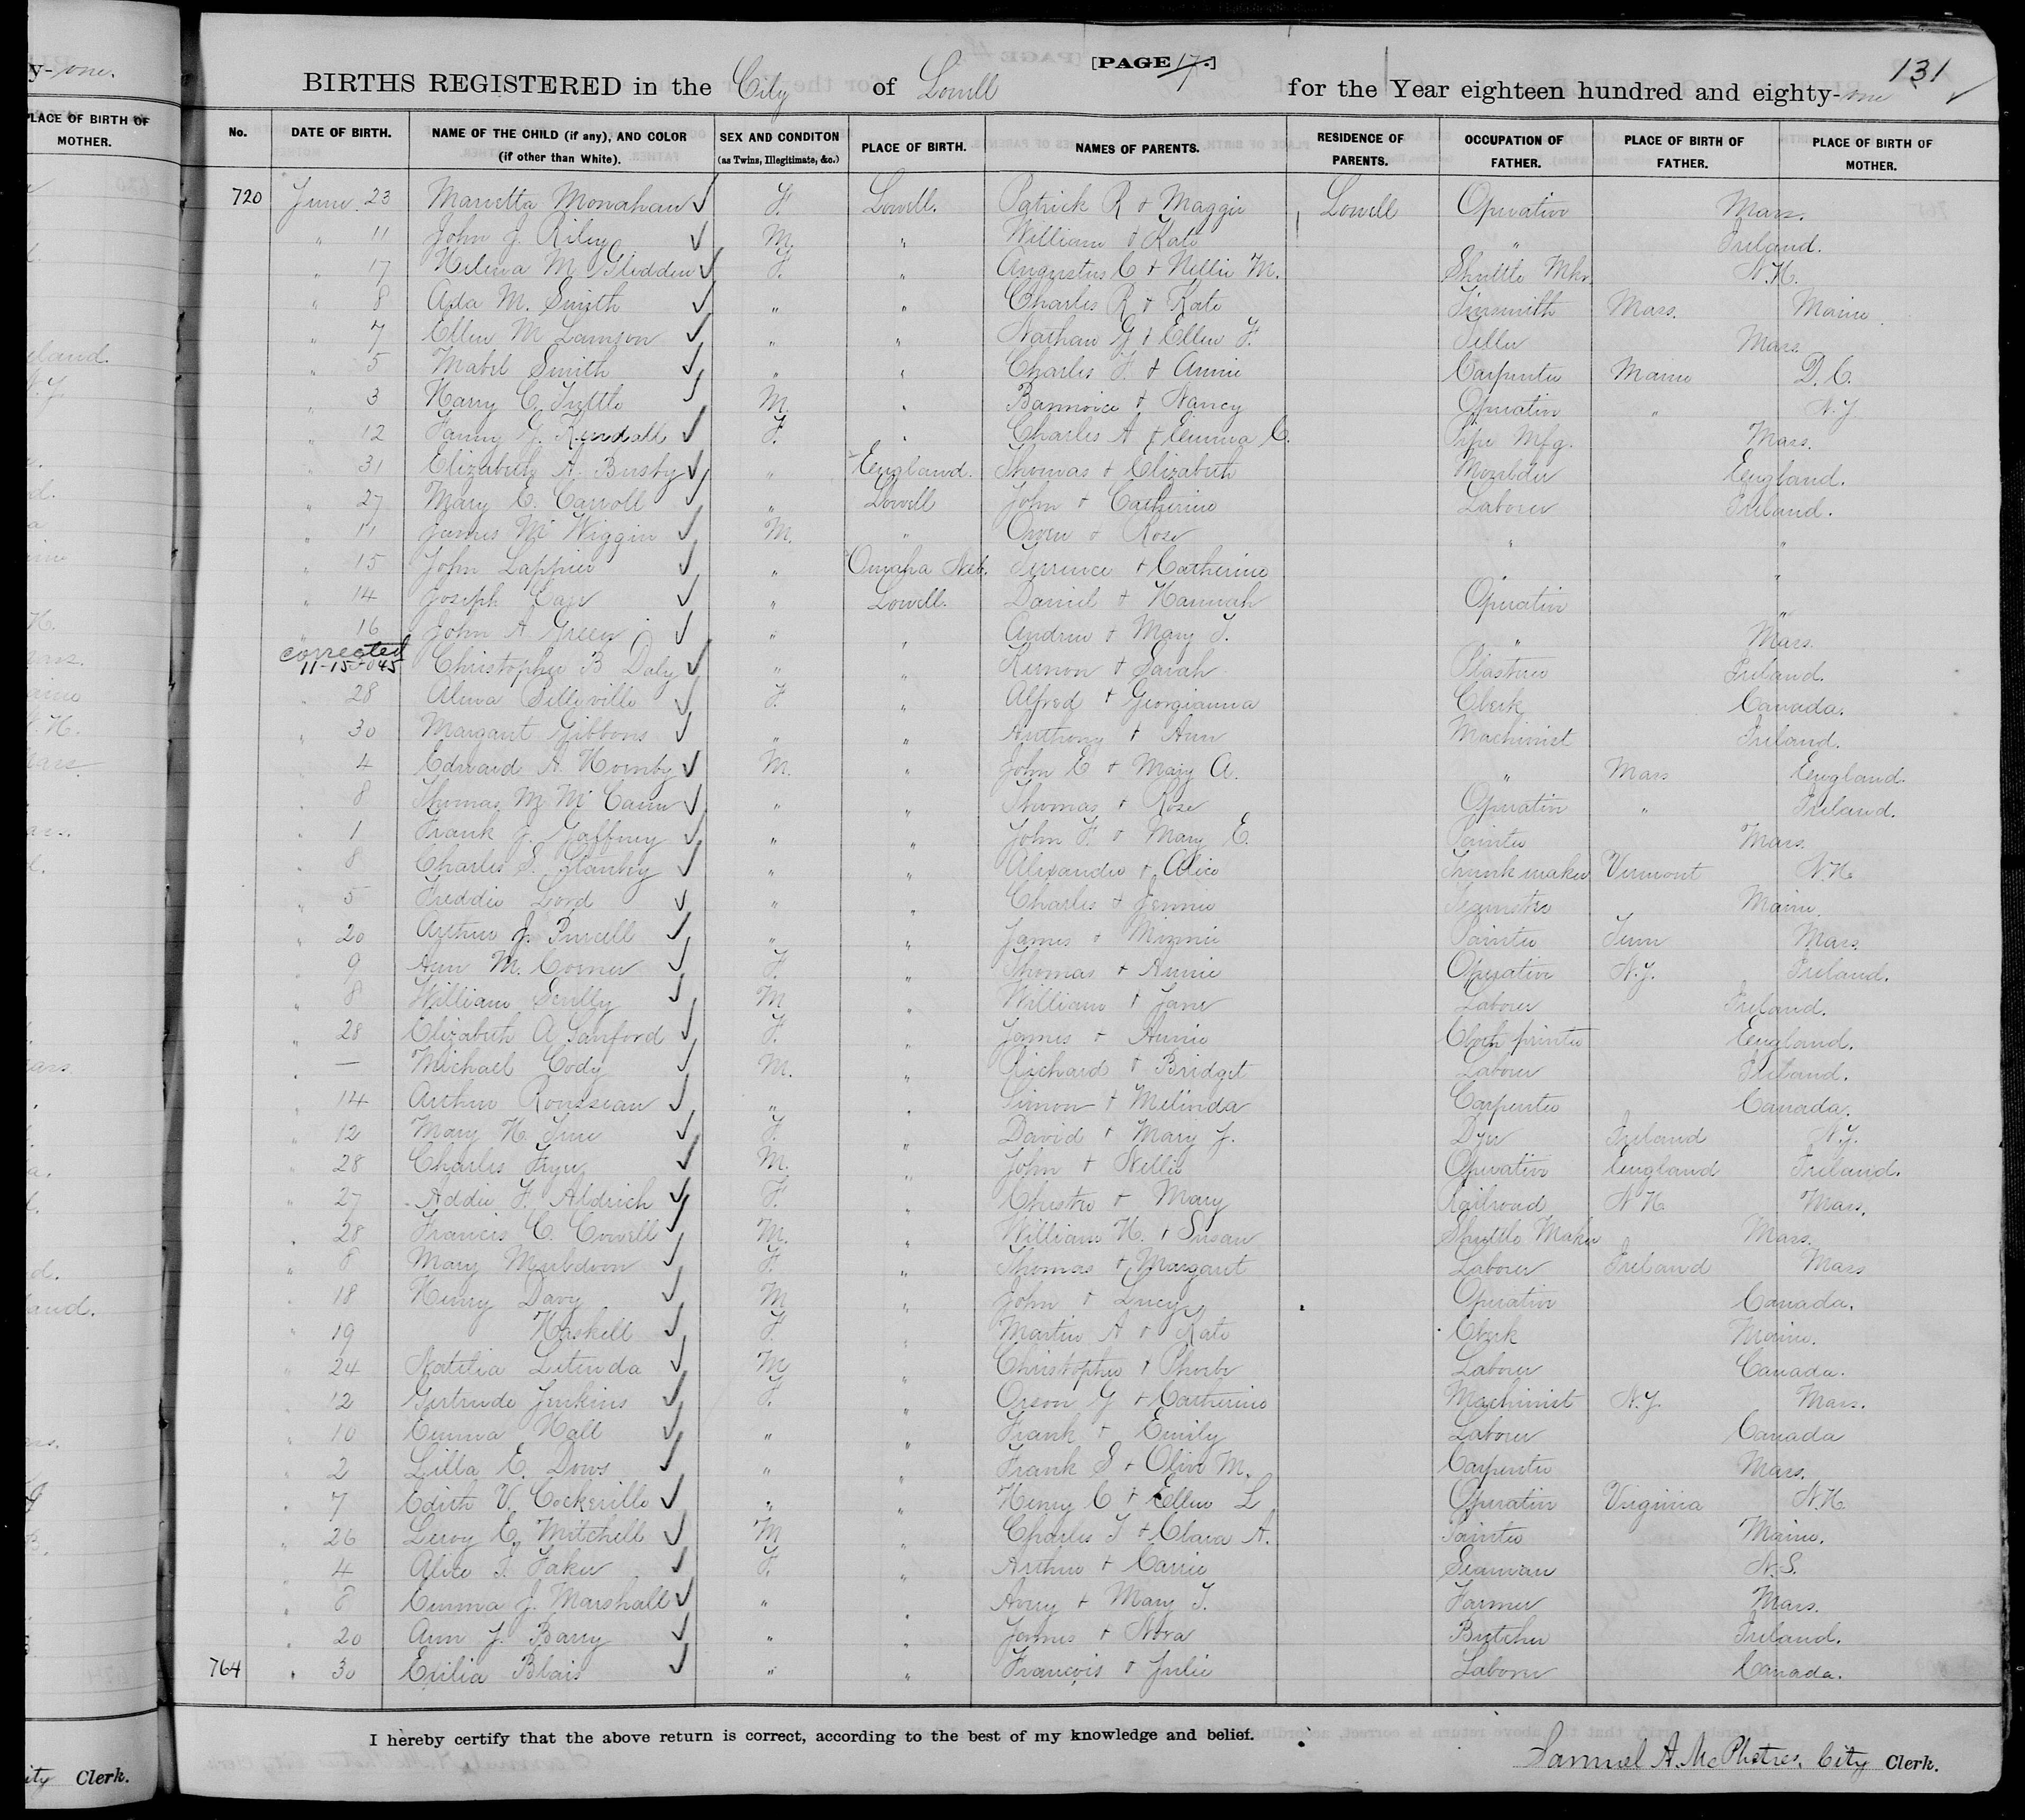 y-one.
PLACE OF BIRTH OF MOTHER.
[PAGE 17.]
131
BIRTHS REGISTERED in the City of Lowell for the Year eighteen hundred and eighty-one
No. DATE OF BIRTH. NAME OF THE CHILD (if any), AND COLOR (if other than White). SEX AND CONDITON (as Twins, Illegitimate, &c.) PLACE OF BIRTH. NAMES OF PARENTS. RESIDENCE OF PARENTS. OCCUPATION OF FATHER. PLACE OF BIRTH OF FATHER. PLACE OF BIRTH OF MOTHER.
720 June 23 Marietta Monahan F. Lowell. Patrick R & Maggie Lowell Operative Mass.
" 11 John J. Riley M. " William & Kate " Ireland.
" 17 Helena M. Glidden F. " Augustus C & Nellie M. Shuttle Mkr. N.H.
" 8 Ada M. Smith " " Charles R & Kate Tinsmith Mass. Maine.
" 7 Ellen M Lamson " " Nathan G & Ellen F. Mass.
" 5 Mabel Smith " " Charles F. & Annie Carpenter Maine D.C.
" 3 Harry C. Tuttle M. " & Nancy Operative " N.Y.
" 12 Fanny G. Kendall F. " Charles A & Emma C. Mfg. Mass.
" 31 Elizabeth A. Busby " England. Thomas & Elizabeth Moulder England.
" 27 Mary E. Carroll " Lowell John & Catherine Laborer Ireland.
" 11 James McWiggin M. " Owen & Rose " "
" 15 John Lappin " Omaha Neb. Terrence & Catherine " "
" 14 Joseph Carr " Lowell. Daniel & Hannah Operative "
" 16 John A. Green " " Andrew & Mary T. " Mass.
corrected 11-15-045 Christopher B Daly " " & Sarah Plasterer Ireland.
" 28 Alma F. " Alfred & Georgianna Clerk Canada.
" 30 Margaret Gibbons " " Anthony & Ann Machinist Ireland.
" 4 Edward A. Hornby M. " John E & Mary A. " Mass England.
" 8 Thomas M. McCann " " Thomas & Rose Operative " Ireland.
" 1 Frank J. Gaffney " " John F. & Mary E. Painter Mass.
" 8 Charles S. " " Alexander & Alice Trunk maker Vermont N.H.
" 5 Freddie Lord " " Charles & Jennie Teamster Maine.
" 20 Arthur J. Purcell " " James & Minnie Painter Mass.
" 9 Ann M. Corner F. " Thomas & Annie Operative N.Y. Ireland.
" 8 William Scully M. " William & Jane Laborer Ireland.
" 28 Elizabeth A Sanford F. " James & Annie Cloth printer England.
" — Michael Cody M. " Richard & Bridget Laborer Ireland.
" 14 Arthur Rousseau " " Simon & Melinda Carpenter Canada.
" 12 Mary H. F. " David & Mary J. Dyer Ireland N.Y.
" 28 Charles Fryer M. " John & Nellie Operative England Ireland.
" 27 Addie F. Aldrich F. " Chester & Mary Railroad N H Mass.
" 28 Francis C. Cowell M. " William H. & Susan Shuttle Maker Mass.
" 8 Mary Muldoon F. " Thomas & Margaret Laborer Ireland Mass
" 18 Henry Davy M " John & Lucy Operative Canada.
" 19 Haskell F. " Martin A & Kate Clerk Maine.
" 24 M " Christopher & Phoebe Laborer Canada.
" 12 Gertrude Jenkins F. " Orson G & Catherine Machinist N.Y. Mass.
" 10 Emma Hall " " Frank & Emily Laborer Canada
" 2 Lilla E. Dows " " Frank S & Olive M. Carpenter Mass.
" 7 Edith V. Cockerille " " Henry C & Ellen L Operative Virginia N.H.
" 26 Leroy E. Mitchell M " Charles T & Clara A. Painter Maine.
" 4 Alice F. " Arthur & Carrie Seaman N.S.
" 8 Emma J. Marshall " " Avery & Mary T. Farmer Mass.
" 20 Ann J. Barry " " James & Nora Butcher Ireland.
764 " 30 Blais " " Francois & Julie Laborer Canada.
I hereby certify that the above return is correct, according to the best of my knowledge and belief.
Samuel A. McPhetres. City Clerk.
ity Clerk.